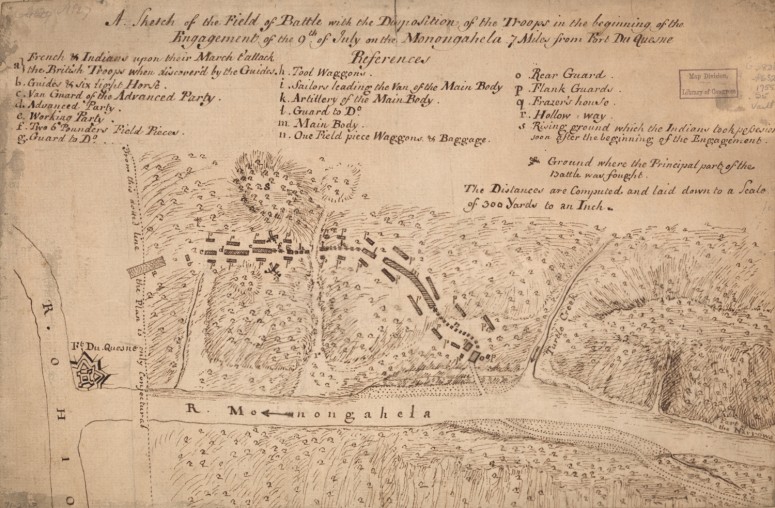 A Sketch of the Field of Battle with the Disposition of the Troops in the beginning of the
Engagement of the 9th of July on the Monongahela 7 Miles from Fort Du Quesne
References
a French & Indians upon their March t'attack
the British Troops when discover'd by the Guides.
b. Guides & six light Horse.
c. Van Guard of the Advanced Party.
d. Advanced Party.
e. Working Party.
f. Two 6 Pounders Field Pieces
g. Guard to Do
h. Tool Waggons.
i. Sailors leading the Van of the Main Body
k. Artillery of the Main Body.
l. Guard to Do
m. Main Body.
n. One Field piece Waggons & Baggage.
o Rear Guard.
p Flank Guards.
q Frazer's house.
r. Hollow way.
s Rising ground which the Indians took possession
soon after the beginning of the Engagement.
Ground where the Principal part of the
Battle was fought.
The Distances are Computed and laid down to a Scale
of 300 Yards to an Inch.
Map Division,
Library of Congress
From this scor'd line the Plan is only conjectured
Ft. Du Quesne
R. OHIO
R. Monongahela
Turtle Creek